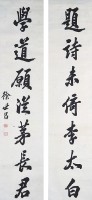 題詩未倚李太白
學道願從茅長君
徐世昌